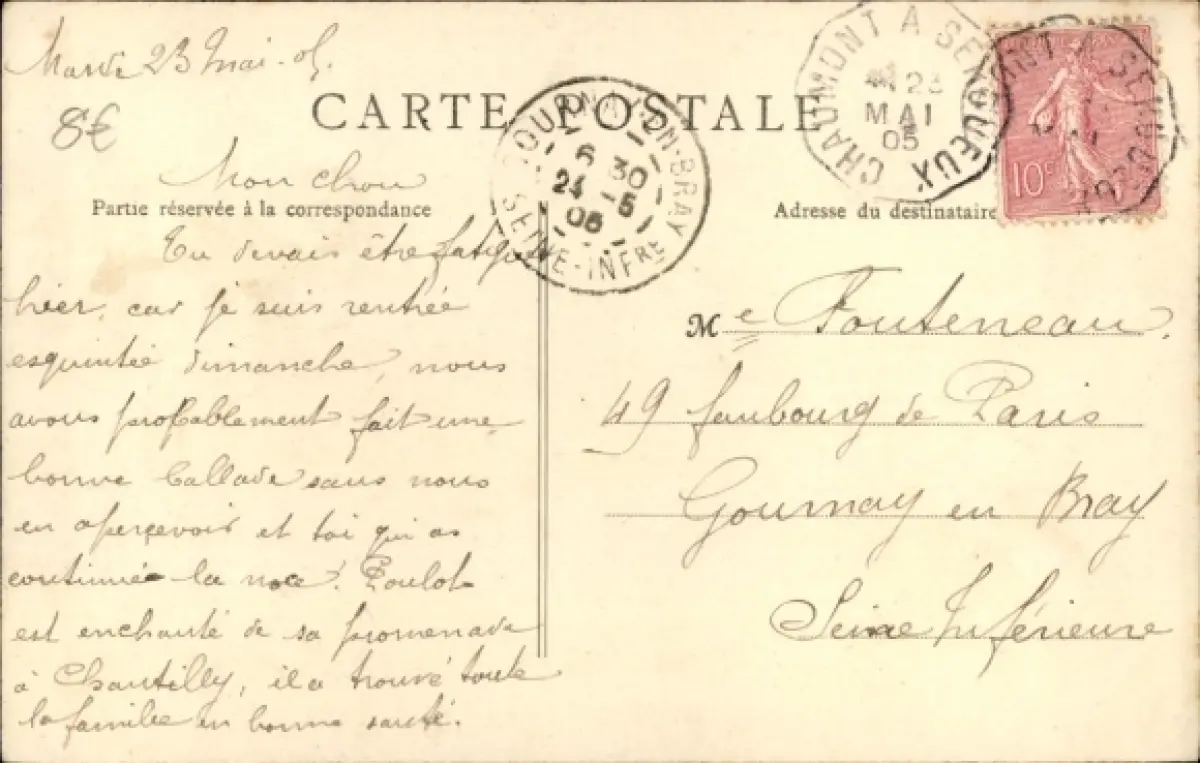 Mardi 23 Mai - 05.
8€
CARTE POSTALE
CHAUMONT A SERQUEUX
23
MAI
05
10c
GOURNAY-EN-BRAY
6 30
24 - 5
05
SEINE-INFRE
Mon chou
Partie réservée à la correspondance
Tu devais être fatigué
hier, car je suis rentrée
esquintée dimanche, nous
avons probablement fait une
bonne ballade sans nous
en apercevoir et toi qui as
continué la noce! Poulot
est enchanté de sa promenade
à Chantilly, il a trouvé toute
la famille en bonne santé.
Adresse du destinataire
Me Fouteneau.
49 faubourg de Paris
Gournay en Bray
Seine Inférieure